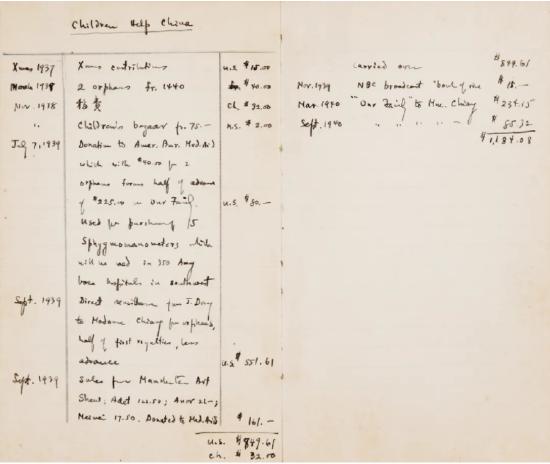 Children Help China
Xmas 1937 Xmas contributions U.S. $15.00
March 1938 2 orphans fr. 1440 $40.00
Nov. 1938 Ch. $32.00
" Children's bazaar fr. 75.— U.S. $2.00
July 7, 1939 Donation to Amer. Bur. Med. Aid
which with $40.00 for 2
orphans forms half of advance
of $225.00 on Our Family. U.S. $80.—
Used for purchasing 15
Sphygmomanometers which
will be used in 350 Army
base hospitals in southwest
Sept. 1939 Direct remittance from J. Day
to Madame Chiang for orphans,
half of first royalties, less
advance U.S. $551.61
Sept. 1939 Sales from Manhattan Art
Show: Adet 122.50; Anor 21.—;
Meimei 17.50. Donated to Med. Aid $161.—
U.S. $849.61
Ch. $32.00
carried over $849.61
Nov. 1939 NBC broadcast "bowl of rice $15.—
Mar. 1940 "Our Family" to Mme. Chiang $234.15
Sept. 1940 " " " " — $85.32
$1,184.08